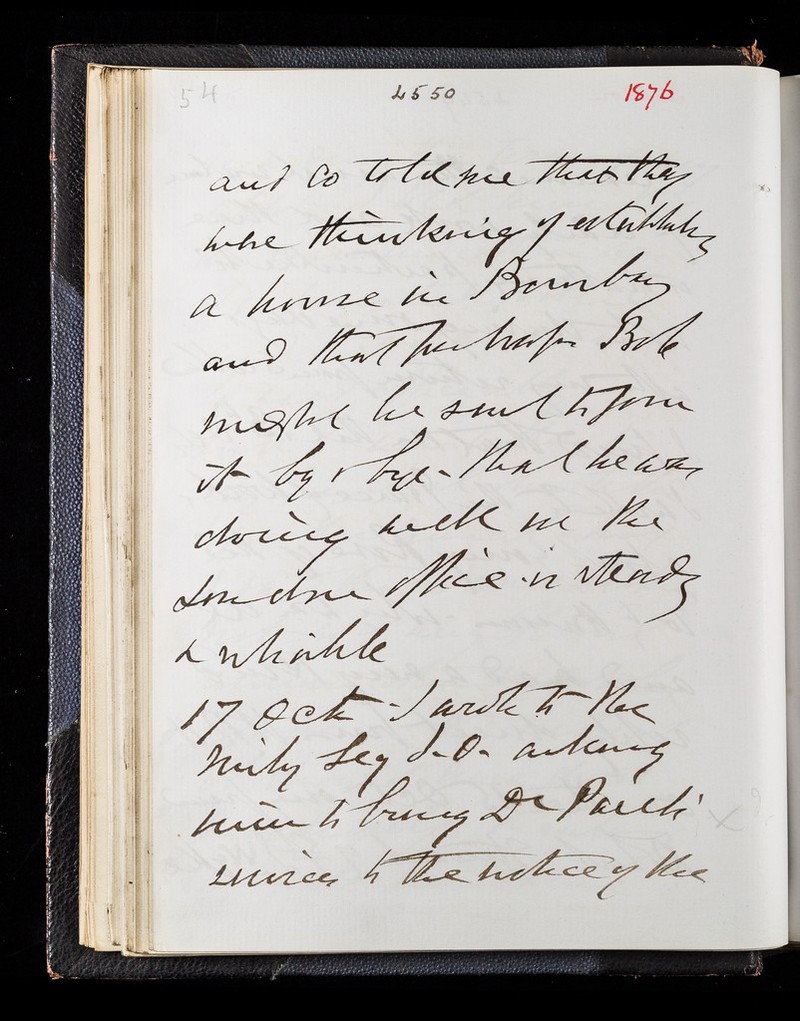 54 4550 1876
and Co told me that they
were thinking of establishing
a house in Bombay
and that perhaps Bob
might be sent to join
it by & bye - that he was
doing well in the
London office - is steady
& reliable
17 Oct - I wrote to the
Mily Secy I.O. asking
him to bring Dr
services to the notice of the